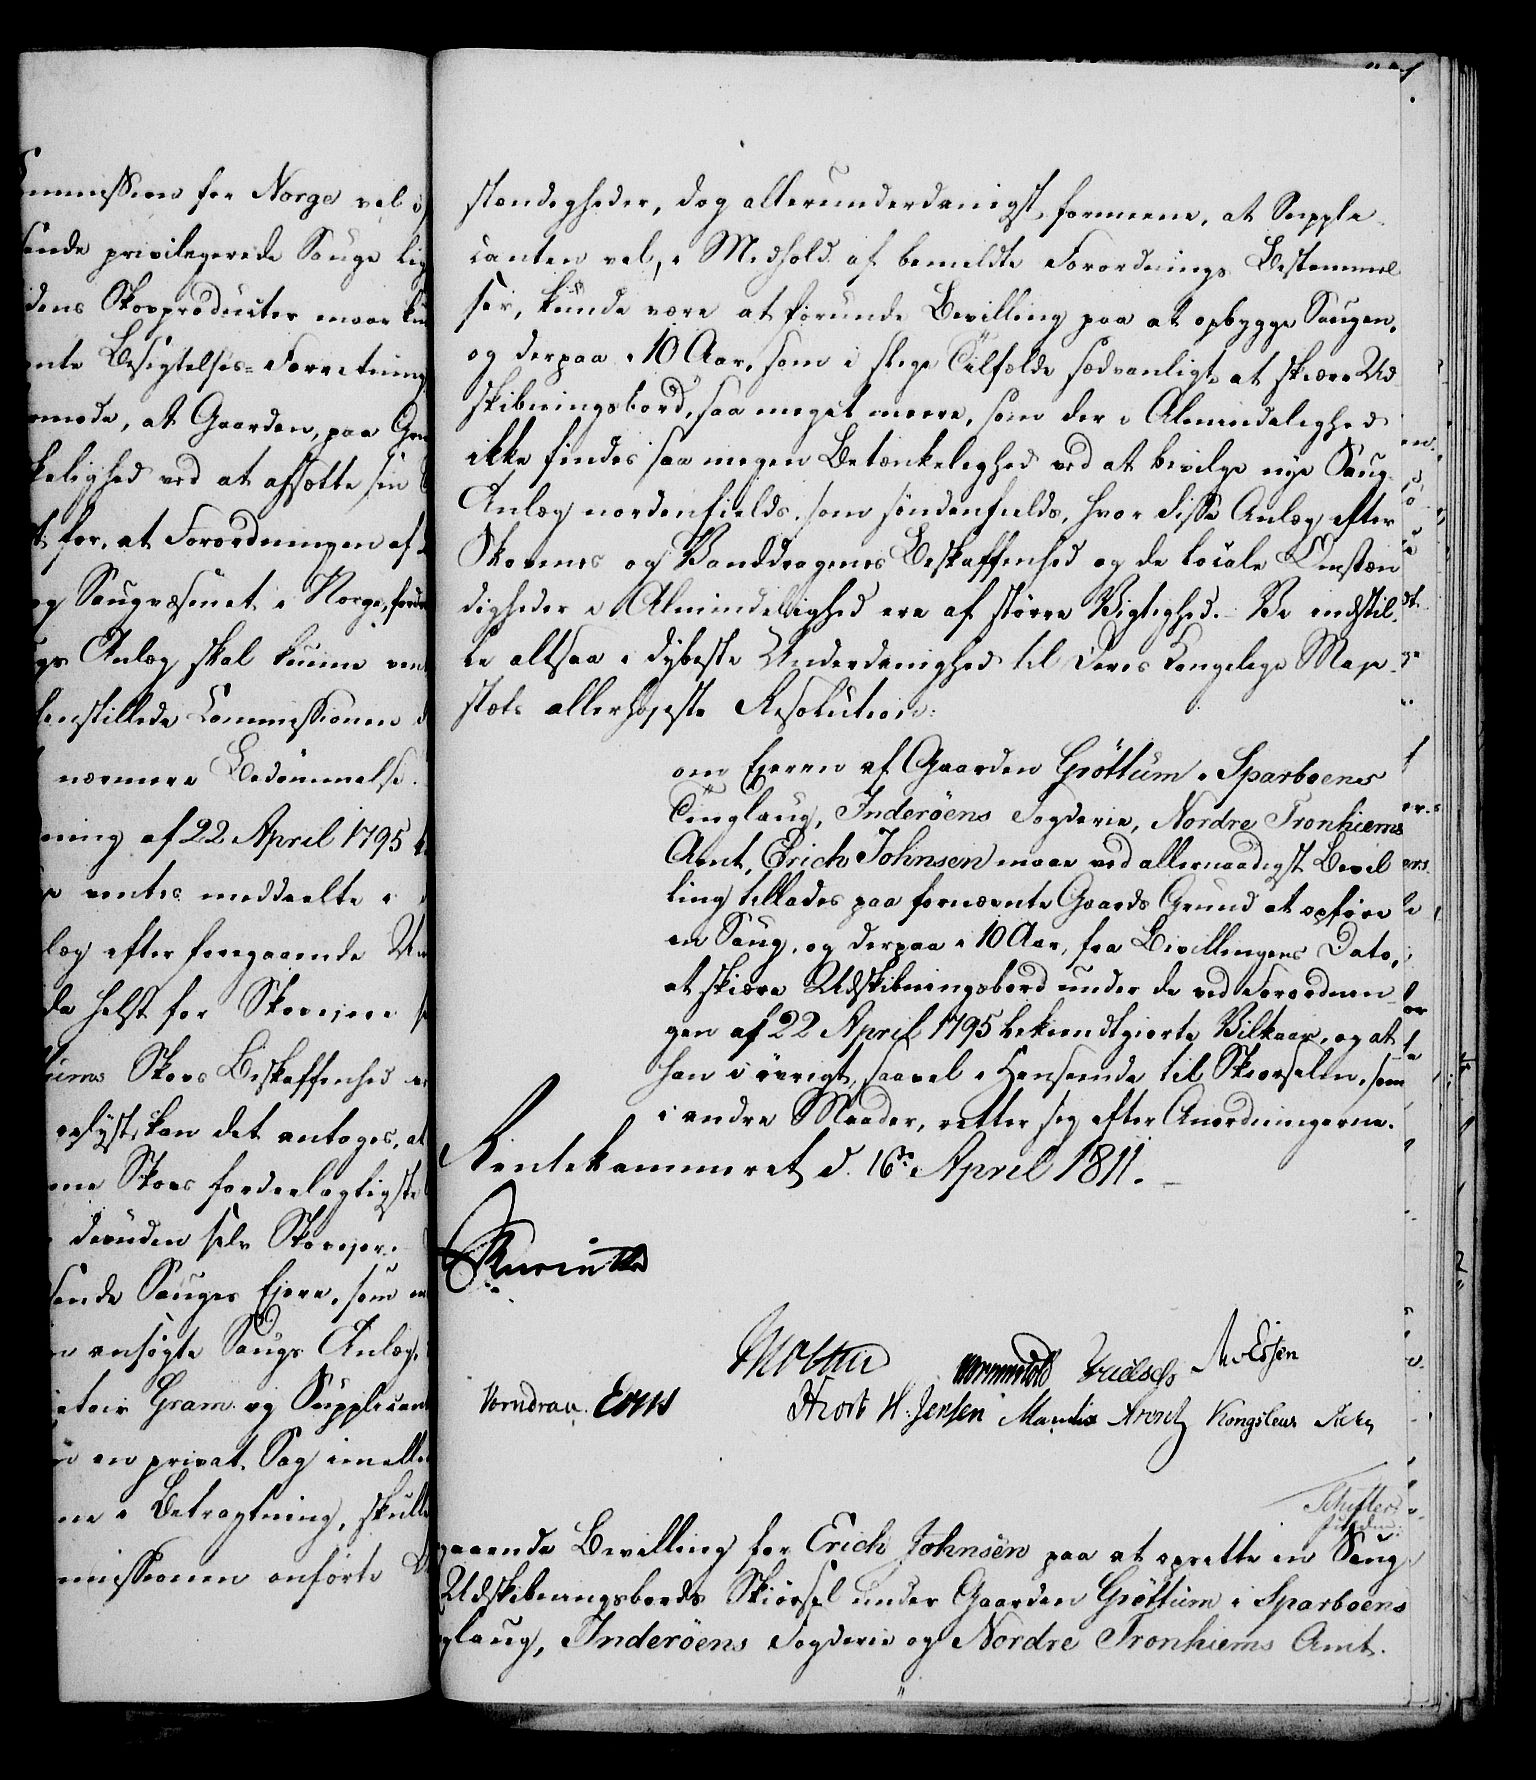 mmission for Norge vel i
ende privilegerede Sauge lig
dens Skovproducter maae kun
nte Besigtelses-Forretning
mode, at Gaarden, paa Gru
kelighed ved at afsætte sin
t for, at Forordningen af
og Saugvæsenet i Norge, forud
gs Anlæg skal kunne ven
lenstillede Commissionen
nærmere Bedømmelse.
ning af 22 April 1795
ventes meddeelte i
læg efter foregaaende Un
da helst for Skovejere
tums Skovs Beskaffenhed
oplyst, kan det antages, at
ne Skovs fordeelagtigste
desuden selv Skovejer
ende Sauges Ejere, som
ansøgte Saugs Anlæg,
Gram og Supplicant
en privat Sag imelle
ne i Betragtning, skulle
missionen anførte
stændigheder, dog allerunderdanigst formeene, at Supple
canten vel, i Medhold af bemeldte Forordnings Bestemmel
ser, kunde være at forunde Bevilling paa at opbygge Saugen,
og derpaa i 10 Aar, som i slige Tilfælde sædvanligt, at skiære Ud
skibningsbord, saa meget meere, som der i Almindelighed
ikke findes saa megen Betænkelighed ved at bevilge nye Saug
Anlæg nordenfields, som søndenfields, hvor disse Anlæg efter
Skovenes og Vanddragenes Beskaffenhed og de locale Omstæn
digheder i Almindelighed ere af større Vigtighed. Vi indstil
le altsaa i dybeste Underdanighed til Deres Kongelige Maje
stæts allerhøjeste Resolution:
om Ejeren af Gaarden Gröttüm i Sparboens
Tinglaug, Inderöens Fogderie, Nordre Tronhiems
Amt, Erich Johnsen maae ved allernaadigst Bevil
ling tillades paa fornævnte Gaards Grund at opføre
en Saug, og derpaa i 10 Aar, fra Bevillingens Dato,
at skiære Udskibningsbord under de ved Forordnin
gen af 22 April 1795 bekiendtgiorte Vilkaar, og at
han i øvrigt, saavel i Henseende til Skiørselen, som
i andre Maader, retter sig efter Anordningerne.
Rentekammeret d. 16de April 1811.
Wormskiold
H. Jensen Arentz
gaaende Bevilling for Erich Johnsen paa at oprette en Saug
Udskibningsbords Skiørsel under Gaarden Gröttüm i Sparboens
glaug, Inderöens Fogderie og Nordre Tronhiems Amt.